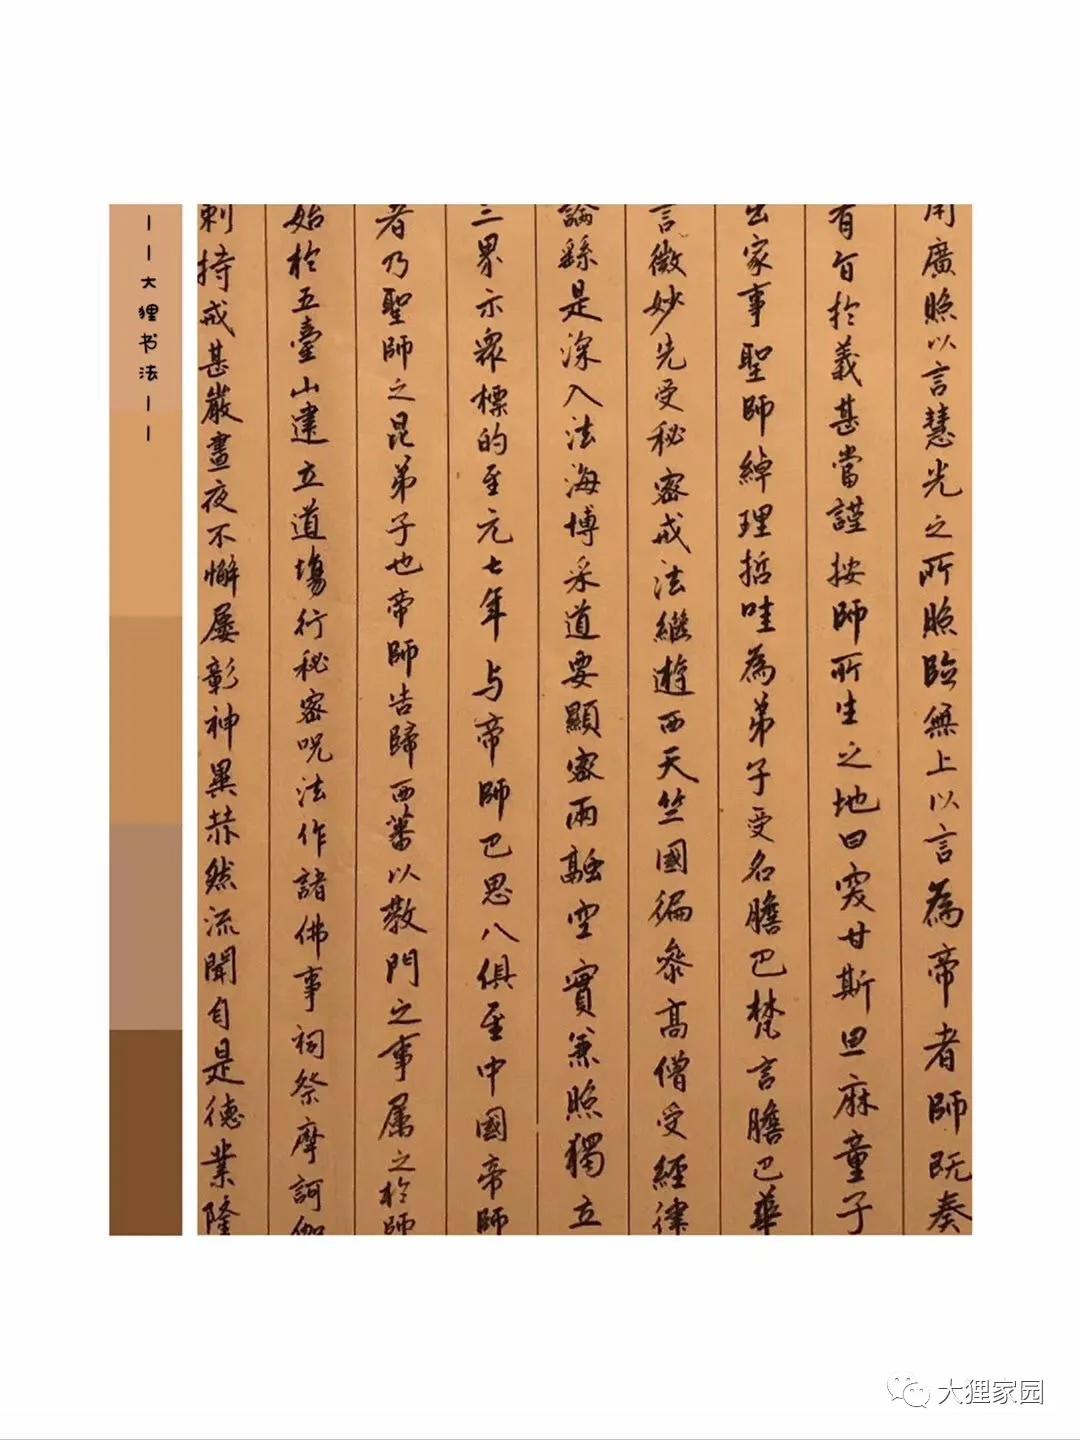 用廣照以言慧光之所照臨無上以言為帝者師既奏
有旨於義甚當謹按師所生之地曰突甘斯旦麻童子
出家事聖師綽理哲哇為弟子受名膽巴梵言膽巴華
言微妙先受秘密戒法繼遊西天竺國徧參高僧受經律
論繇是深入法海博采道要顯密兩融空實兼照獨立
三界示眾標的至元七年与帝師巴思八俱至中國帝師
者乃聖師之昆弟子也帝師告歸西蕃以教門之事属之於師
始於五臺山建立道場行秘密呪法作諸佛事祠祭摩訶伽
剌持戒甚嚴晝夜不懈屢彰神異赫然流聞自是德業隆
——大狸书法——
大狸家园